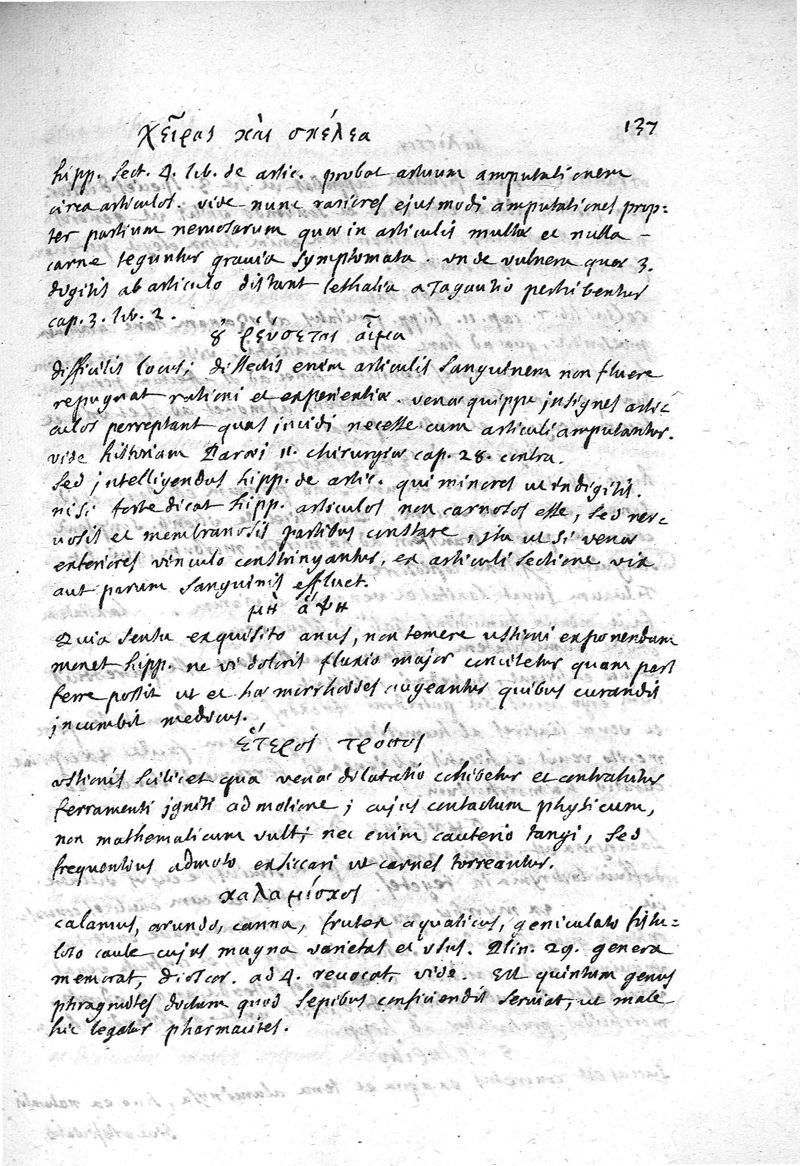 137
χεῖρας καὶ σκέλεα
hipp. sect. 4. lib. de artic. probat artuum amputationem
circa articulos. vide nunc rariores ejusmodi amputationes prop=
ter partium nervosarum quae in articulis multae et nulla -
carne teguntur gravia symptomata. unde vulnera quae 3.
digitis ab articulo distant lethalia a Tagautio perhibentur
cap. 3. lib. 2.
ȣ ῥεύσεται αἷμα
difficilis locus; dissectis enim articulis sanguinem non fluere
repugnat rationi et experientiae. venae quippe insignes arti=
culos perreptant quas incidi necesse cum articuli amputantur.
vide historiam Paraei 11. chirurgiae cap. 28. contra.
Sed intelligendus hipp. de artic. qui minores ut in digitis.
nisi forte dicat hipp. articulos non carnosos esse, sed ner=
vosis et membranosis partibus constare, ita ut si venae
exteriores vinculo constringantur, ex articuli sectione vix
aut parum sanguinis effluet.
μὴ ἅψῃ
Quia sensu exquisito anus, non temere ustioni exponendum
monet hipp. ne vi doloris fluxio major concitetur quam pars
ferre possit ut et haemorrhoides augeantur quibus curandis
incumbit medicus.
ἕτερος τρόπος
ustionis scilicet qua venae dilatatio cohibetur et contrahitur
ferramenti igniti admotione; cujus contactum physicum,
non mathematicum vult; nec enim cauterio tangi, sed
frequentius admoto exsiccari ut carnes torreantur.
καλαμίσκος
calamus, arundo, canna, frutex aquaticus, geniculato fistu=
loso caule cujus magna varietas et usus. Plin. 29. genera
memorat, dioscor. ad 4. revocat, vide. Est quintum genus
phragmites dictum quod sepibus conficiendis serviat, ut male
hic legatur pharmacites.